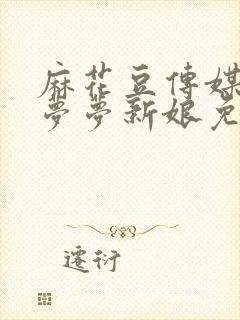 麻花豆傳媒
夢夢新娘免
遷衍